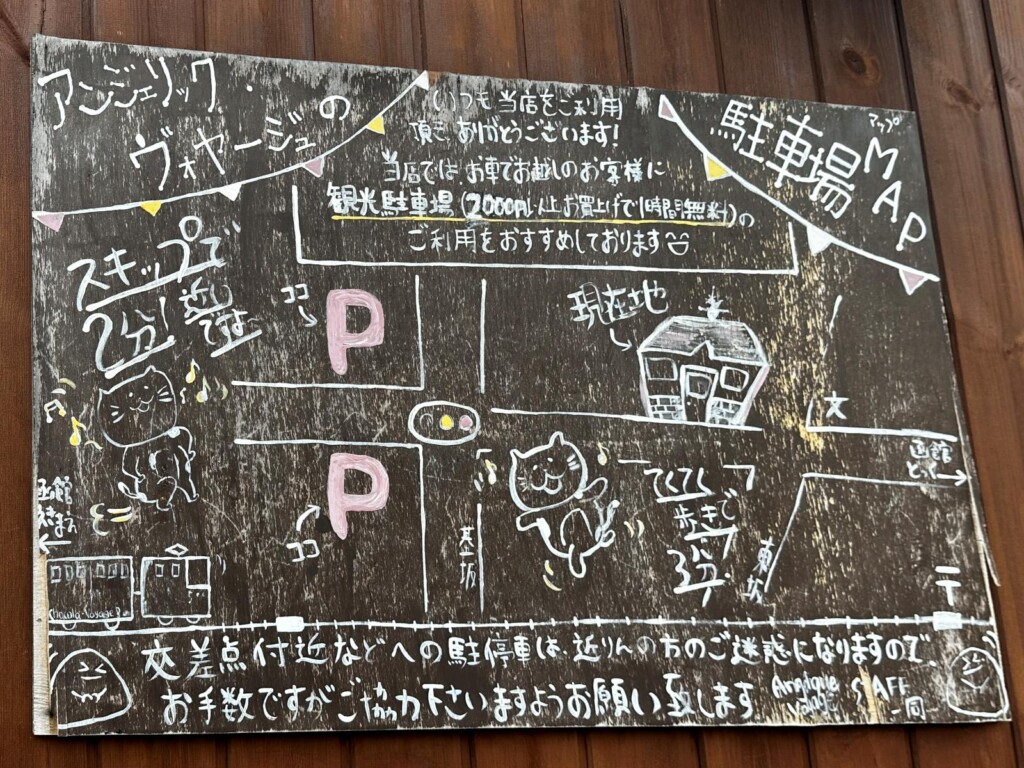 アンジェリック・
ヴォヤージュの
いつも当店をご利用
頂きありがとうございます!
当店ではお車でお越しのお客様に
観光駐車場(2000円以上お買上げで1時間無料)の
ご利用をおすすめしております
アップ
駐車場MAP
スキップで
2分!
近い
ですよ
ココ
P
現在地
文
函館
どっく
函館
えきまえ
ココ
P
基坂
「てくてく」
歩きで
3分
東坂
〒
交差点付近などへの駐停車は、近りんの方のご迷惑になりますので、
お手数ですがご協力下さいますようお願い致します
Angelique
Voyage
STAFF
一同